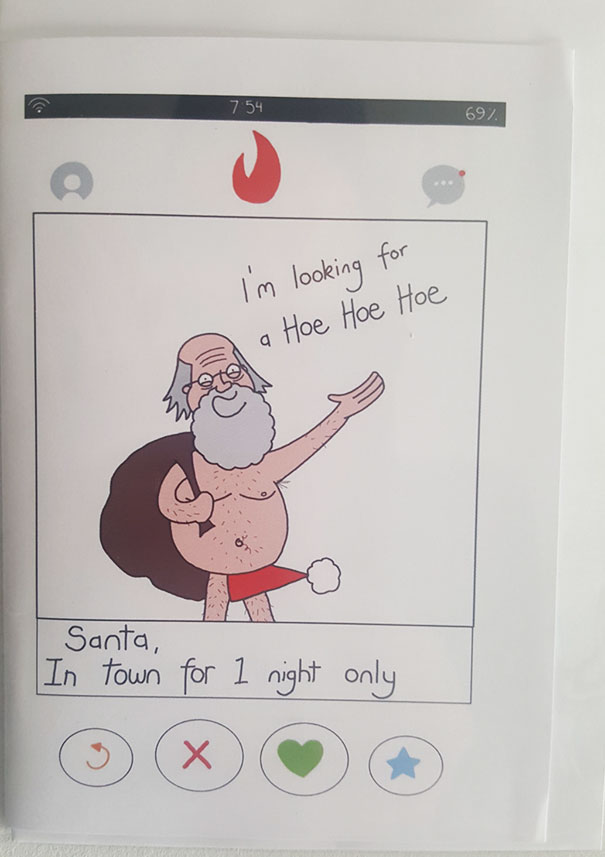 7 54
69%
I'm looking for
a Hoe Hoe Hoe
Santa,
In town for 1 night only